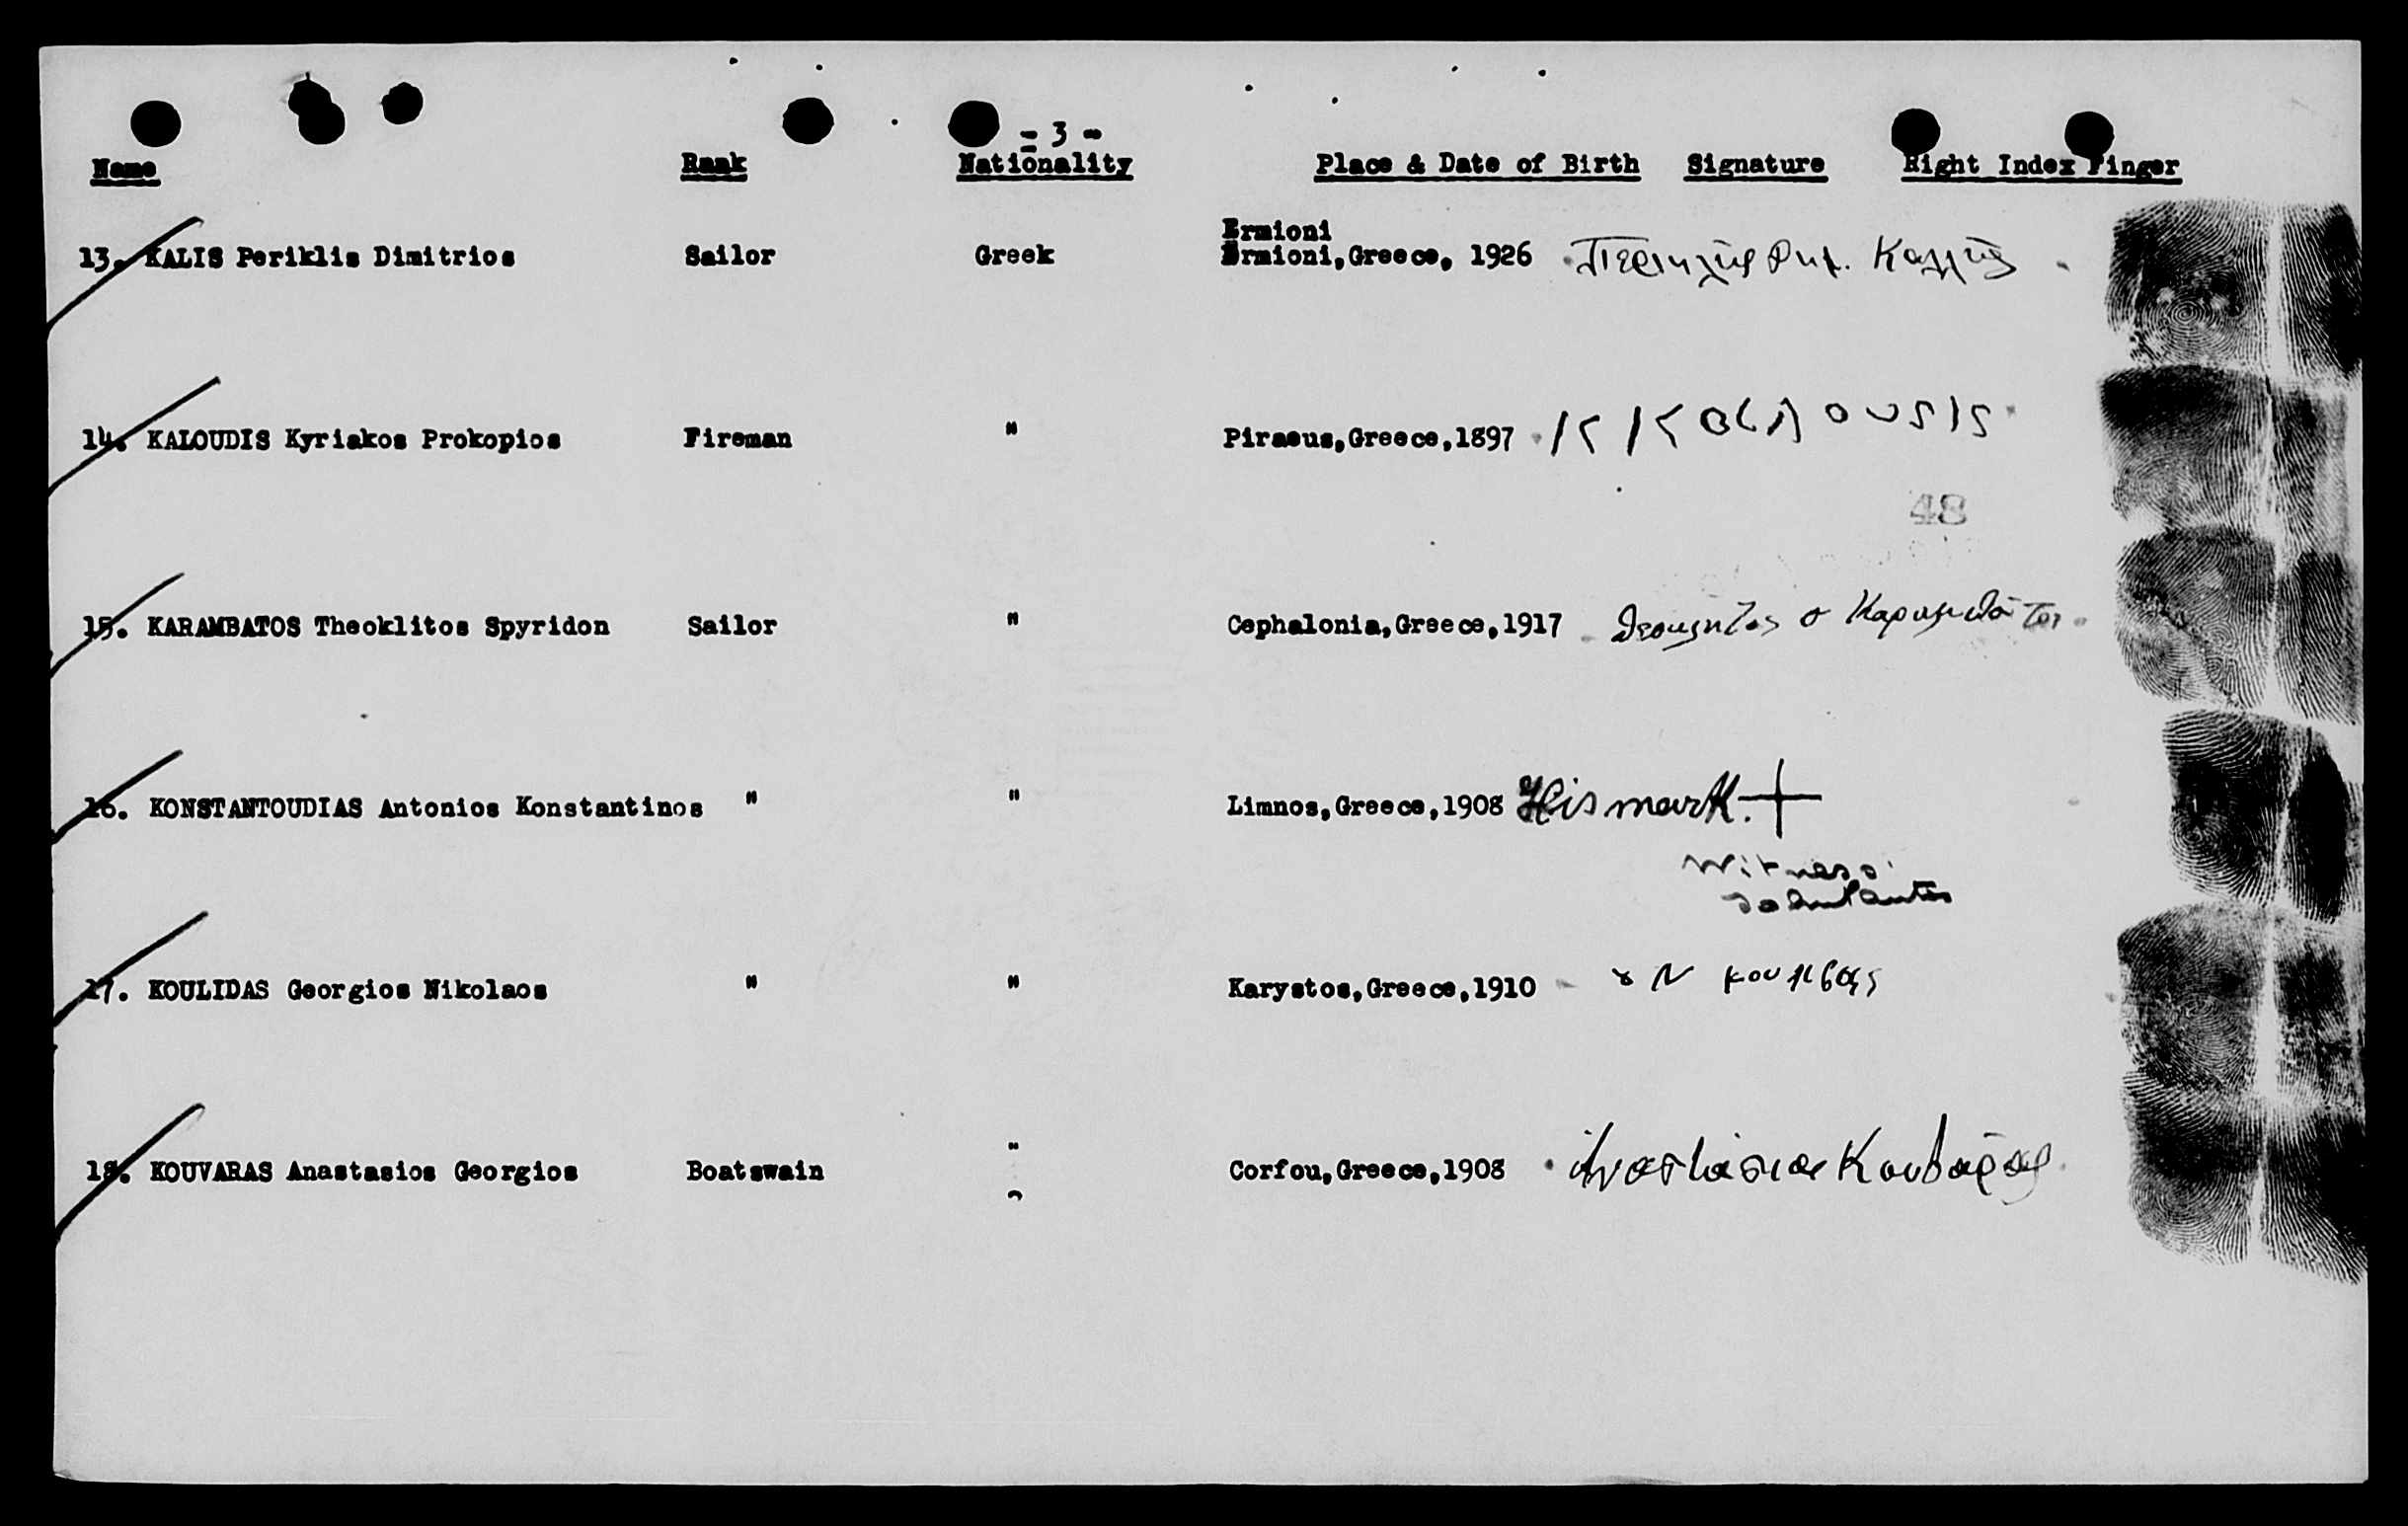 - 3 -
Name Rank Nationality Place & Date of Birth Signature Right Index Finger
Ermioni
13. KALIS Periklis Dimitrios Sailor Greek Ermioni, Greece, 1926 Περικλής Δημ. Καλλής
14. KALOUDIS Kyriakos Prokopios Fireman " Piraeus, Greece, 1897
48
15. KARAMBATOS Theoklitos Spyridon Sailor " Cephalonia, Greece, 1917
16. KONSTANTOUDIAS Antonios Konstantinos " " Limnos, Greece, 1908 His mark. +
Witness
17. KOULIDAS Georgios Nikolaos " " Karystos, Greece, 1910
18. KOUVARAS Anastasios Georgios Boatswain " Corfou, Greece, 1908 Κουβαρας